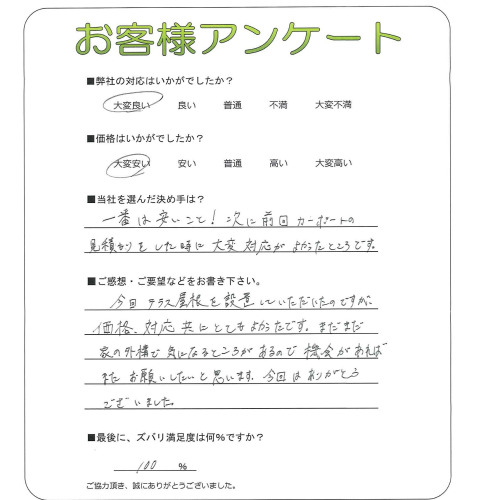 お客様アンケート
■弊社の対応はいかがでしたか？
大変良い 良い 普通 不満 大変不満
■価格はいかがでしたか？
大変安い 安い 普通 高い 大変高い
■当社を選んだ決め手は？
一番は安いこと！次に前回カーポートの
見積もりをした時に大変対応がよかったところです。
■ご感想・ご要望などをお書き下さい。
今回テラス屋根を設置していただいたのですが、
価格、対応共にとてもよかったです。まだまだ
家の外構で気になるところがあるので機会があれば
またお願いしたいと思います。今回はありがとう
ございました。
■最後に、ズバリ満足度は何%ですか？
100 %
ご協力頂き、誠にありがとうございました。